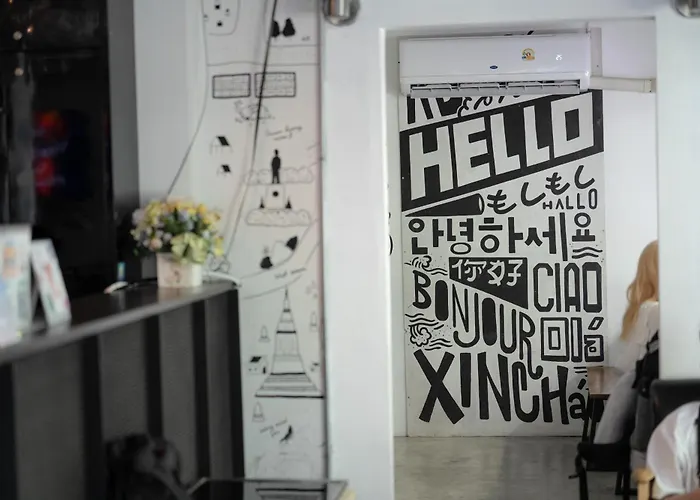 HELLO
もしもし
HALLO
안녕하세요
你好
CIAO
BONJOUR
Olá
XINCHà